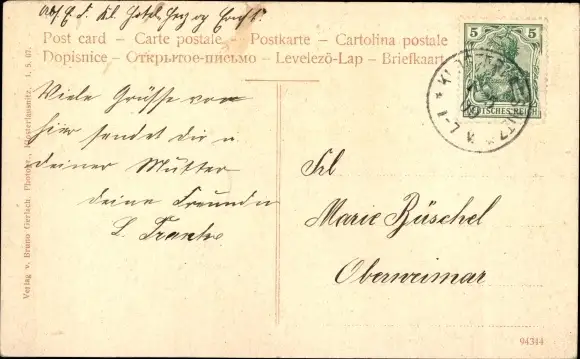 Post card – Carte postale – Postkarte – Cartolina postale
Dopisnice – Открытое-письмо – Levelező-Lap – Briefkaart
Viele Grüsse von
hier sendet dir u.
deiner Mutter
deine Freundin
L.
Frl
Marie Büschel
Oberweimar
5 5
DEUTSCHES REICH
Verlag v. Bruno Gerlach, Photogr., Klosterlausnitz. 1. S. 07.
94344